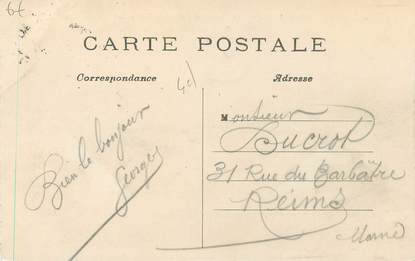 6€
CARTE POSTALE
Correspondance
Adresse
Bien le bonjour
Georges
Monsieur
Ducrot
31 Rue du Barbâtre
Reims
Marne